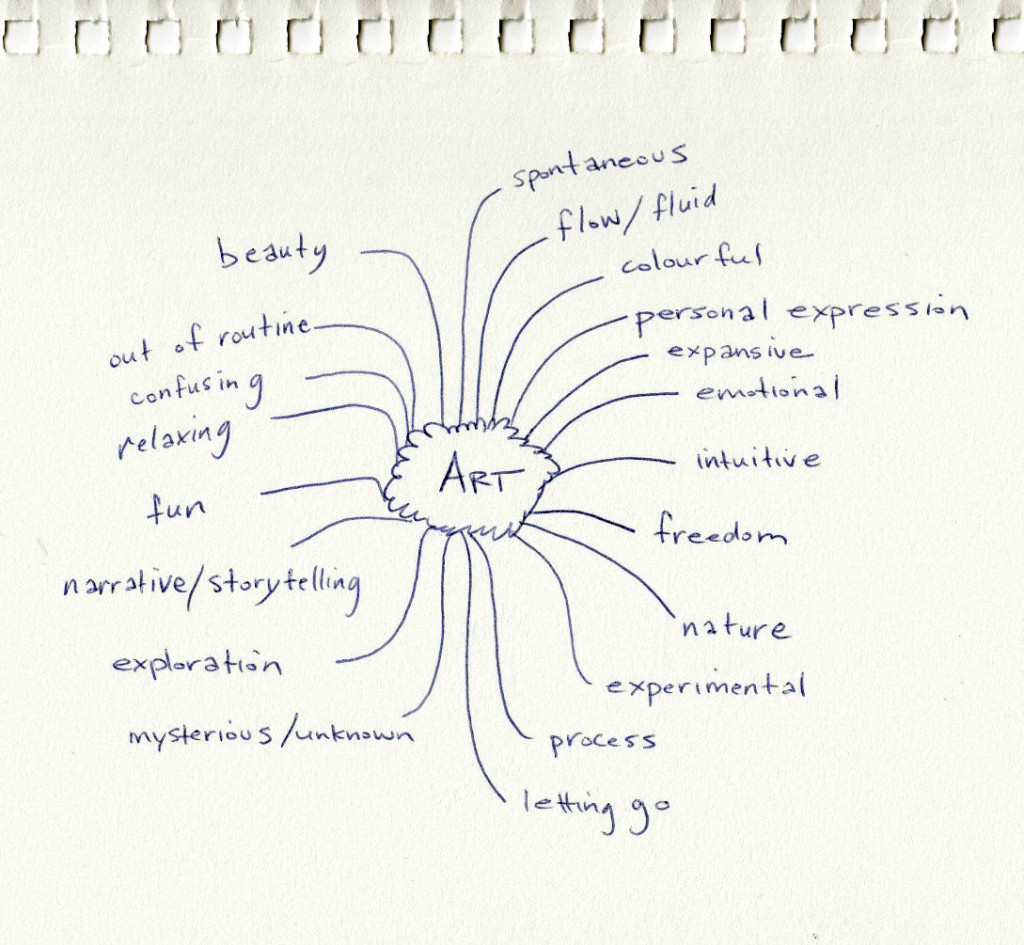 spontaneous
flow/fluid
colourful
personal expression
expansive
emotional
intuitive
freedom
nature
experimental
process
letting go
mysterious/unknown
exploration
narrative/storytelling
fun
relaxing
confusing
out of routine
beauty
ART